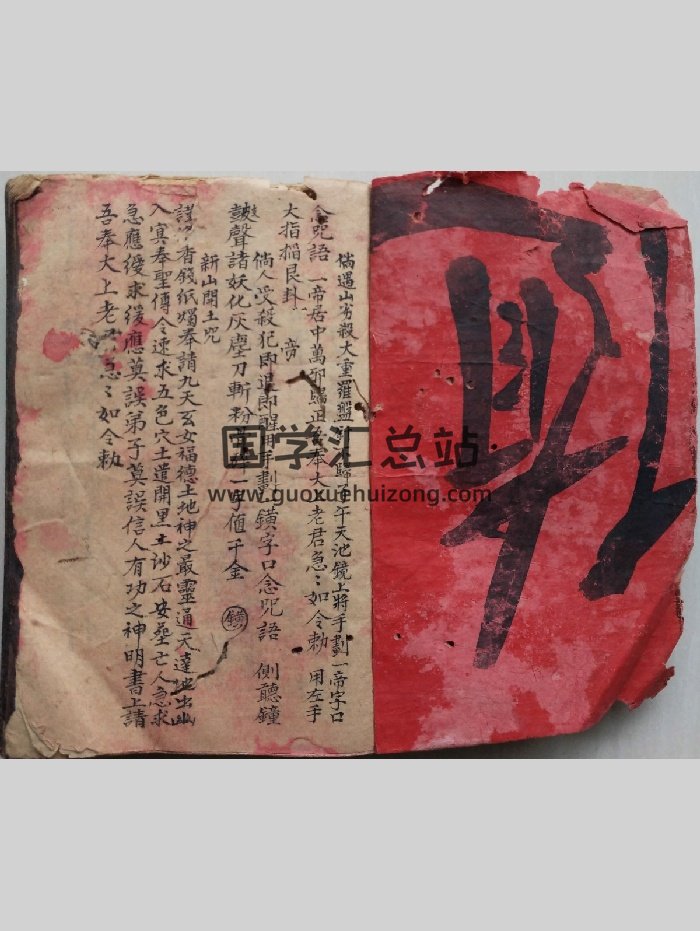 倘遇山有殺大重羅盤 歸子午天池鏡上將手劃一帝字口
念咒語 一帝居中萬邪歸正吾奉大上老君急〻如令勅 用左手
大指掐艮卦 帝
倘人受殺犯即退即醒用手劃一鐄字口念咒語 側聽鐘
鼓聲諸妖化灰塵刀斬粉 一字值千金 鐄
新山開土咒
謹 香錢紙燭奉請九天玄女福德土地神之最靈通天達地出幽
入冥奉聖傳令速求五色穴土遣開黑土沙石安葬亡人急求
急應緩求緩應莫誤弟子莫誤信人有功之神明書上請
吾奉大上老君急〻如令勅
国学汇总站
www.guoxuehuizong.com